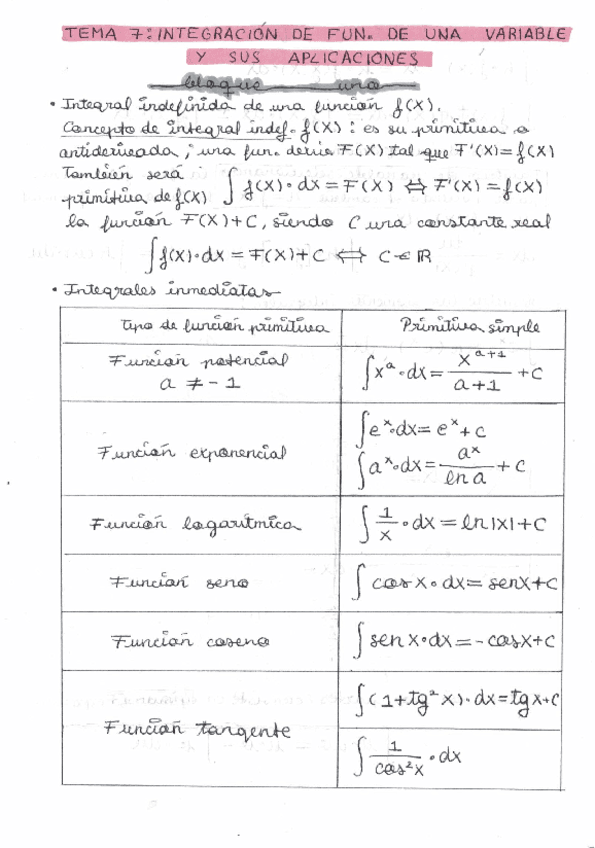 TEMA 7: INTEGRACIÓN DE FUN. DE UNA VARIABLE
Y SUS APLICACIONES
bloque uno
• Integral indefinida de una función f(x).
Concepto de integral indef. f(x): es su primitiva o
antiderivada; una fun. deriv F(x) tal que F'(x)=f(x)
También será
primitiva de f(x) ∫f(x)·dx = F(x) ⇔ F'(x) = f(x)
la función F(x)+C, siendo C una constante real
∫f(x)·dx = F(x)+C ⇔ C∈ℝ
• Integrales inmediatas
Tipo de función primitiva | Primitiva simple
Función potencial a ≠ -1 | ∫x^a·dx = x^(a+1)/(a+1) + C
Función exponencial | ∫e^x·dx = e^x + C
∫a^x·dx = a^x/ln a + C
Función logarítmica | ∫1/x·dx = ln|x| + C
Función seno | ∫cos x·dx = senx+C
Función coseno | ∫sen x·dx = -cosx+C
Función tangente | ∫(1+tg²x)·dx = tgx+C
∫1/cos²x·dx